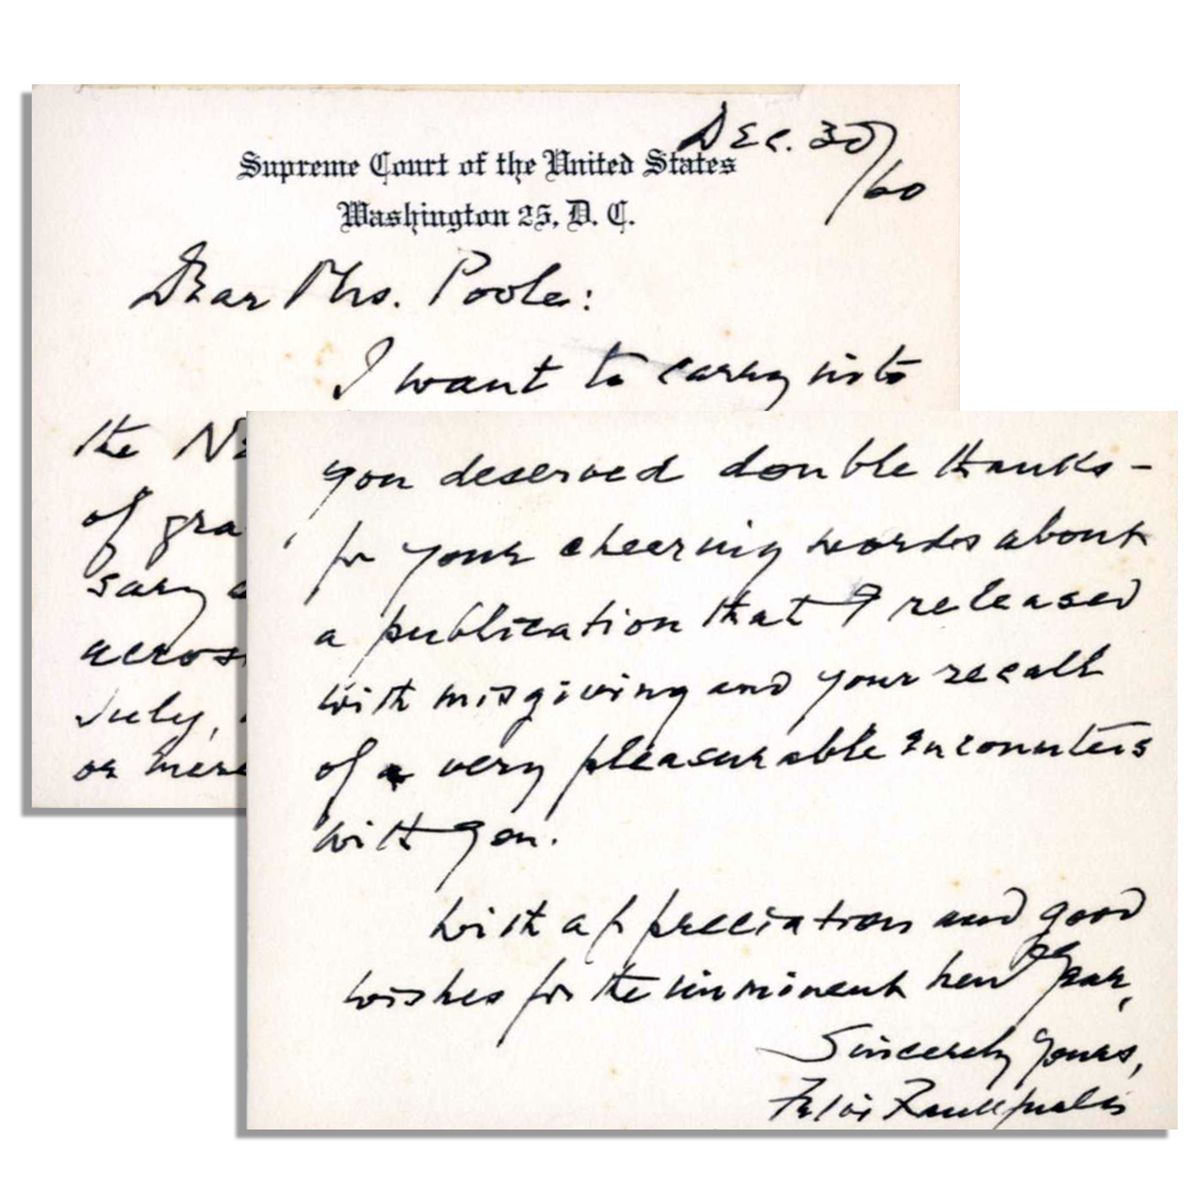 Dec. 30/60
Supreme Court of the United States
Washington 25, D. C.
Dear Mrs. Poole:
I want to carry into
the
of gra
sary
across
July,
or mere
you deserved double thanks -
for your cheering words about
a publication that I released
with misgiving and your recall
of very pleasurable encounters
with you.
With appreciation and good
wishes for the imminent new year,
Sincerely yours,
Felix Frankfurter